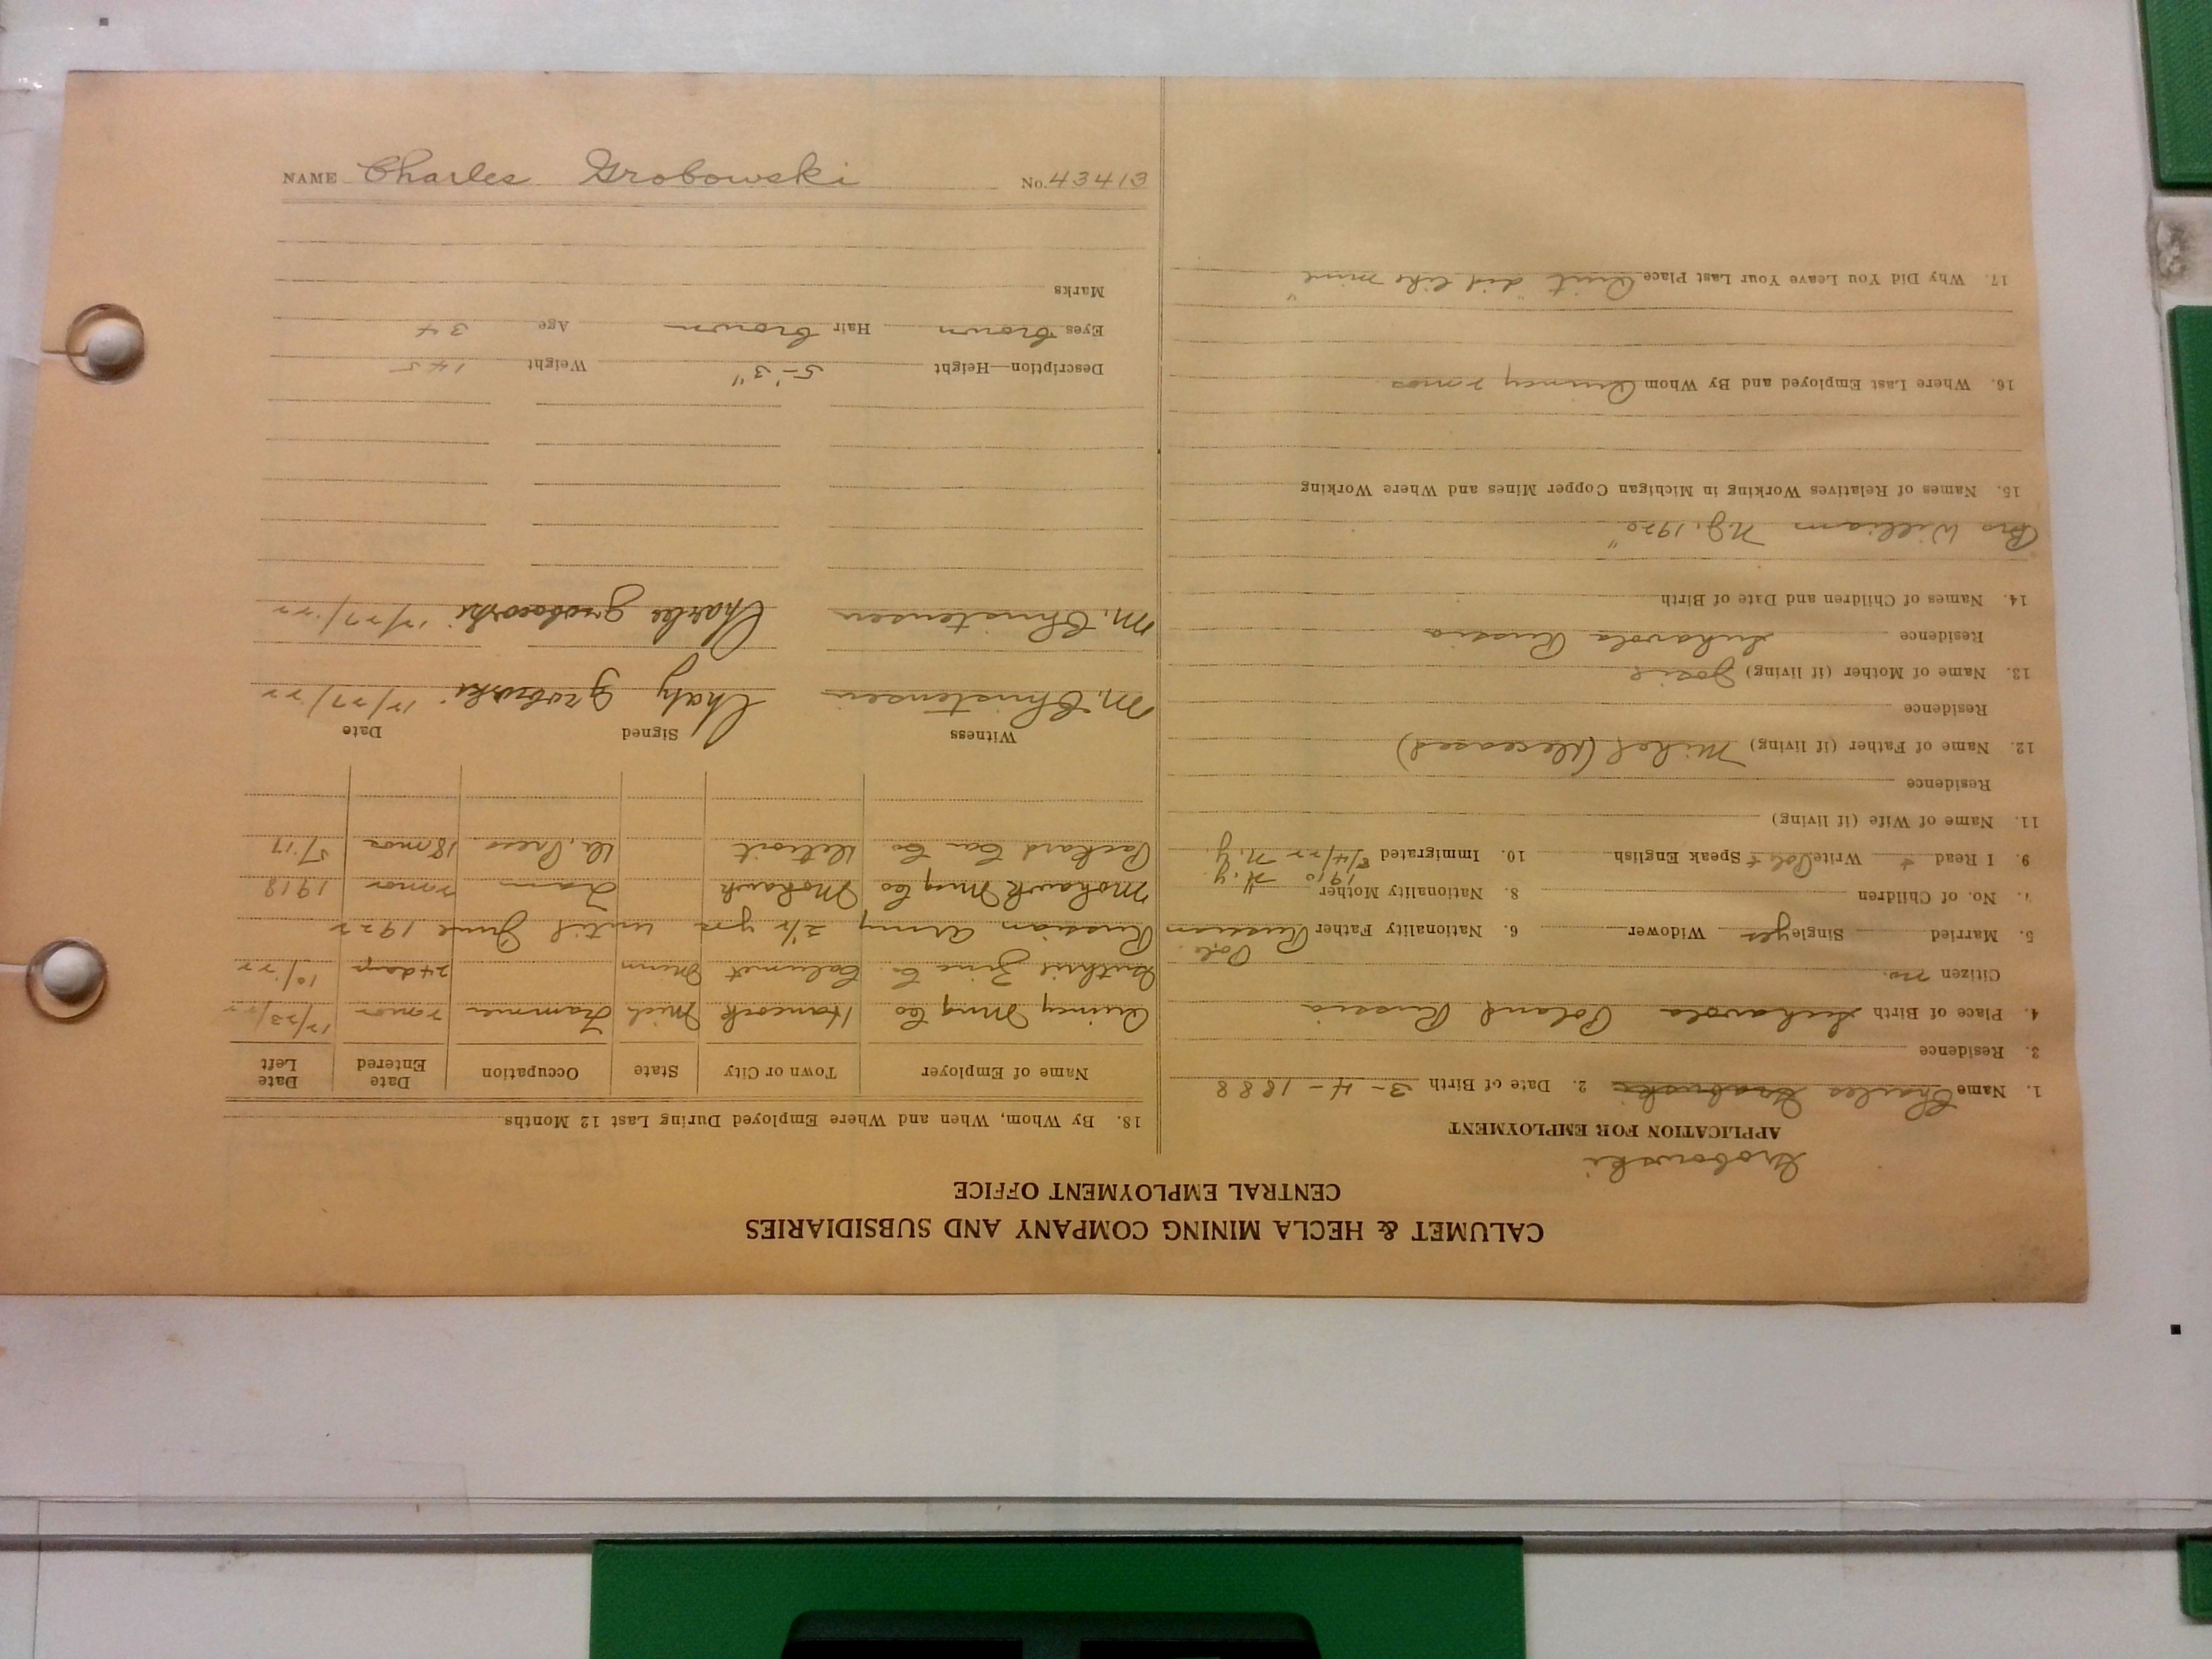 NAME Charles Grobowski No. 43413
CALUMET & HECLA MINING COMPANY AND SUBSIDIARIES
CENTRAL EMPLOYMENT OFFICE
Grobowski
APPLICATION FOR EMPLOYMENT
1. Name Charles Grabowski 2. Date of Birth 3-4-1888
3. Residence
4. Place of Birth Poland Russia
Citizen no.
5. Married Single yes Widower 6. Nationality Father Russian Pole
7. No. of Children 8. Nationality Mother
1910 N.Y.
9. I Read + Write Pole + Speak English 10. Immigrated 8/4/22 N.Y.
11. Name of Wife (if living)
Residence
12. Name of Father (if living) Mikol (deceased)
Residence
13. Name of Mother (if living) Josie
Residence Russia
14. Names of Children and Date of Birth
Bro William N.J. 1920"
15. Names of Relatives Working in Michigan Copper Mines and Where Working
16. Where Last Employed and By Whom Quincy 2 mos
17. Why Did You Leave Your Last Place Quit "did like mine"
18. By Whom, When and Where Employed During Last 12 Months
Name of Employer Town or City State Occupation Date Entered Date Left
Quincy Mng Co Hancock Mich Trammer 2 mos 12/23/22
Zinc Co. Calumet Minn 24 days 10/22
Russian Army 2 1/2 yrs until June 1922
Mohawk Mng Co Mohawk Tram 2 mos 1918
Packard Car Co Detroit Dr. Press 18 mos 5/17
Witness Signed Date
M. Christensen Chaly Grobowski 12/27/22
M. Christensen Charles Grobowski 12/27/22
Description—Height 5-'3" Weight 145
Eyes brown Hair brown Age 34
Marks